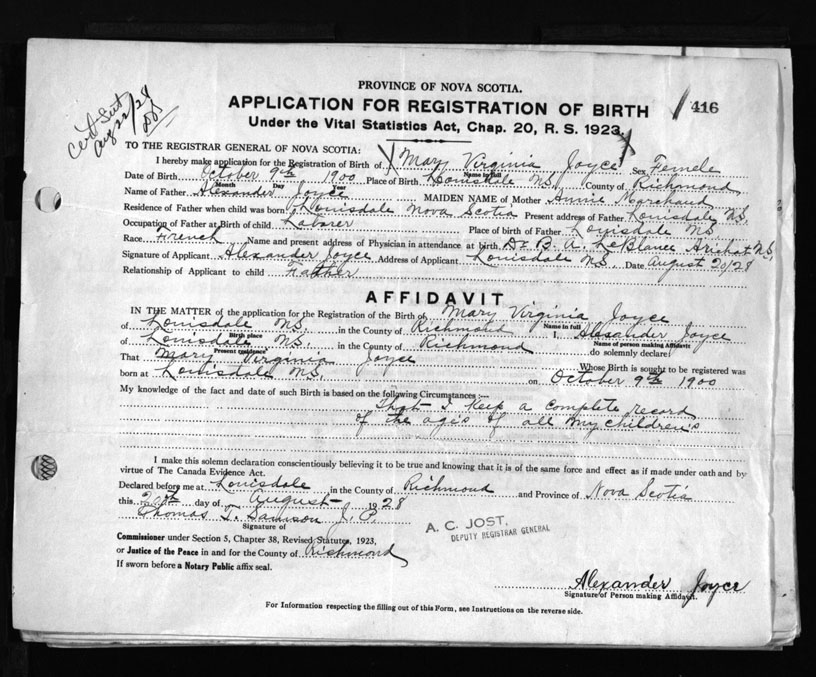 PROVINCE OF NOVA SCOTIA.
416
APPLICATION FOR REGISTRATION OF BIRTH
Under the Vital Statistics Act, Chap. 20, R. S. 1923.
Cert Sent
Aug 22/28
TO THE REGISTRAR GENERAL OF NOVA SCOTIA:
I hereby make application for the Registration of Birth of Mary Virginia Joyce Sex Femele
Name in full
Date of Birth October 9th 1900 Place of Birth Louisdale N.S. County of Richmond
Month Day Year
Name of Father Alexander Joyce MAIDEN NAME of Mother Annie Marchand
Residence of Father when child was born Louisdale Nova Scotia Present address of Father Louisdale N.S.
Occupation of Father at Birth of child Laborer Place of birth of Father Louisdale N.S.
Race French Name and present address of Physician in attendance at birth Dr B. A. LeBlance Arichat N.S.
Signature of Applicant Alexander Joyce Address of Applicant Louisdale N.S. Date August 20/28
Relationship of Applicant to child Father
AFFIDAVIT
IN THE MATTER of the application for the Registration of the Birth of Mary Virginia Joyce
Name in full
of Louisdale N.S. in the County of Richmond I, Alexander Joyce
Birth place Name of person making Affidavit
of Louisdale N.S. in the County of Richmond do solemnly declare:
Present residence
That Mary Virginia Joyce Whose Birth is sought to be registered was
born at Louisdale N.S. on October 9th 1900
My knowledge of the fact and date of such Birth is based on the following Circumstances:—
That I keep a complete record
of the agis of all my children's
I make this solemn declaration conscientiously believing it to be true and knowing that it is of the same force and effect as if made under oath and by
virtue of The Canada Evidence Act.
Declared before me at Louisdale in the County of Richmond and Province of Nova Scotia
this 20th day of August 1928
Thomas T. Samson J. P.
Signature of
A. C. JOST,
DEPUTY REGISTRAR GENERAL
Commissioner under Section 5, Chapter 38, Revised Statutes, 1923,
or Justice of the Peace in and for the County of Richmond
If sworn before a Notary Public affix seal.
Alexander Joyce
Signature of Person making Affidavit.
For Information respecting the filling out of this Form, see Instructions on the reverse side.